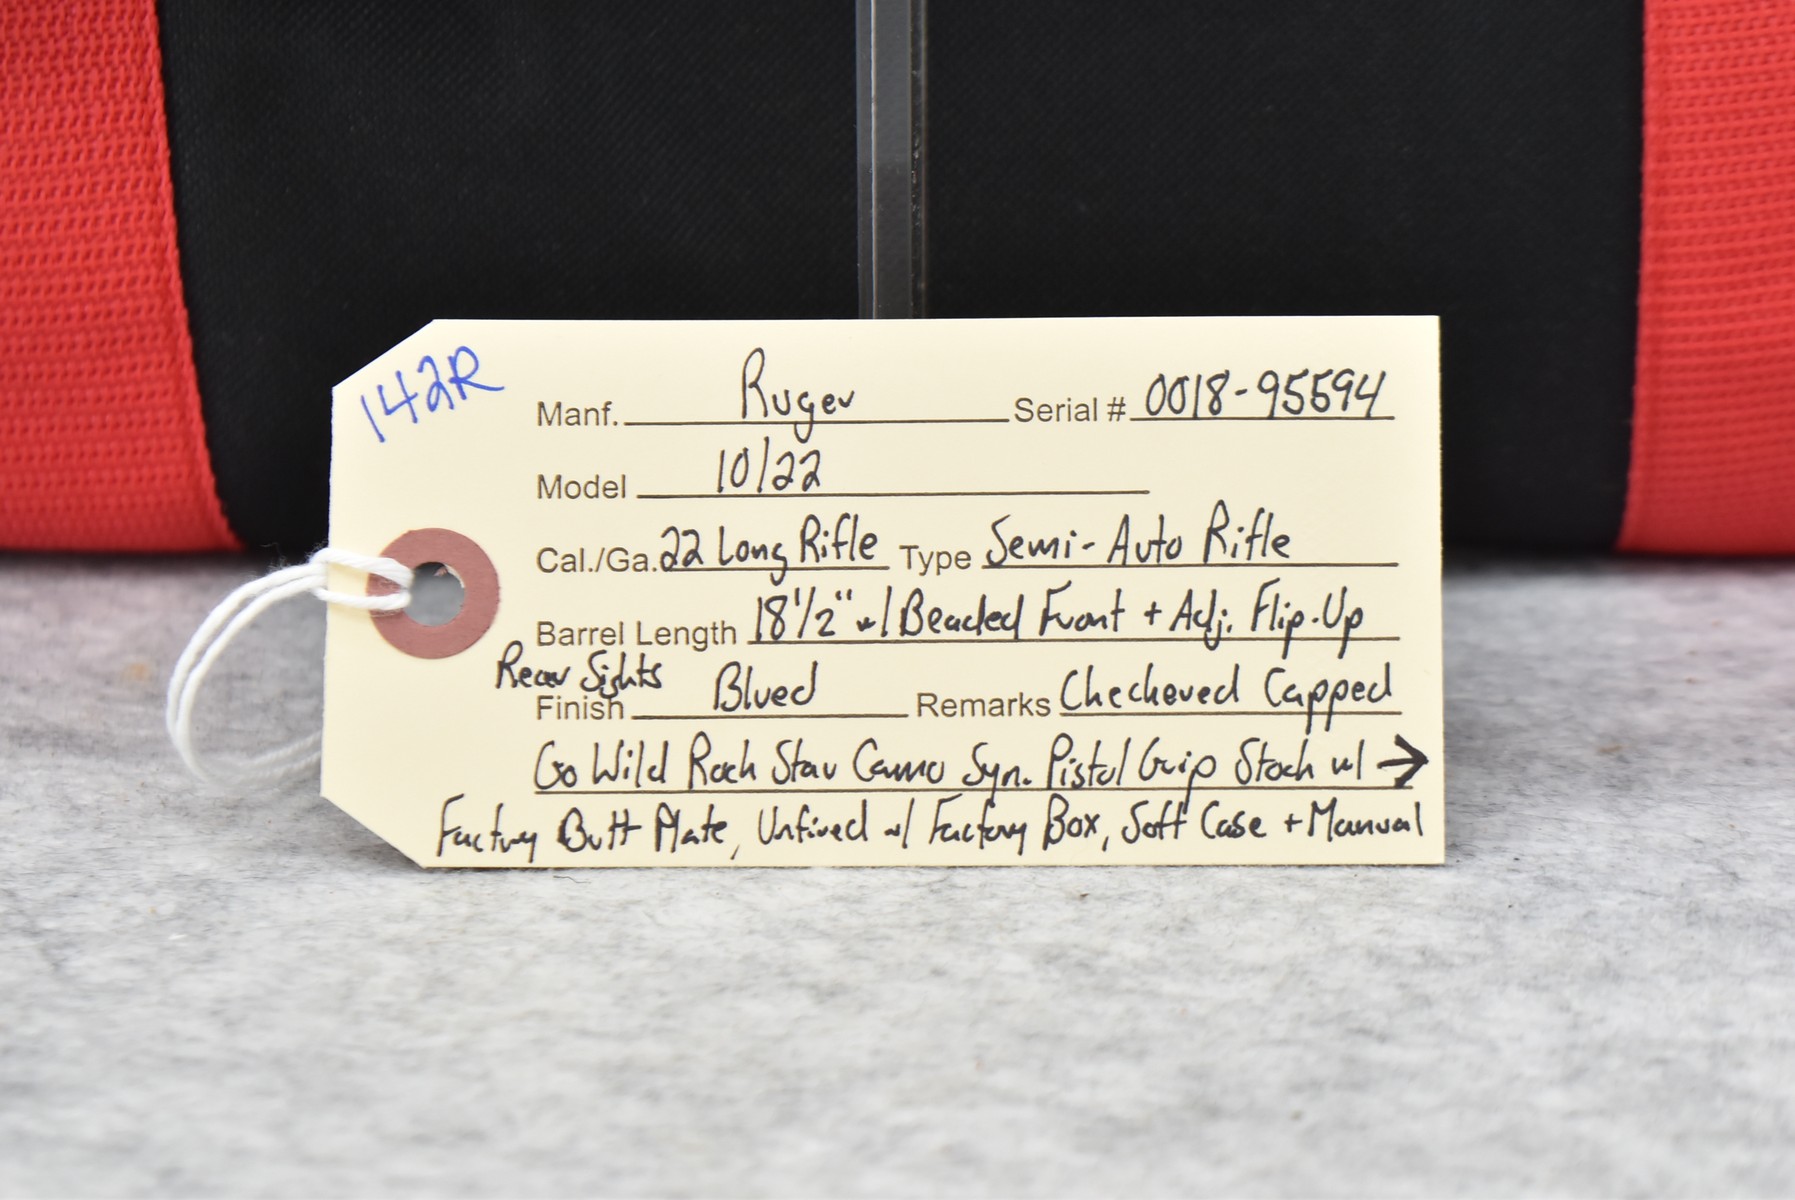 142R
Manf. Ruger Serial # 0018-95594
Model 10/22
Cal./Ga. 22 Long Rifle Type Semi-Auto Rifle
Barrel Length 18 1/2" w/ Beaded Front + Adj. Flip-Up
Rear Sights
Finish Blued Remarks Checkered Capped
Go Wild Rock Star Camo Syn. Pistol Grip Stock w/ →
Factory Butt Plate, Unfired w/ Factory Box, Soft Case + Manual